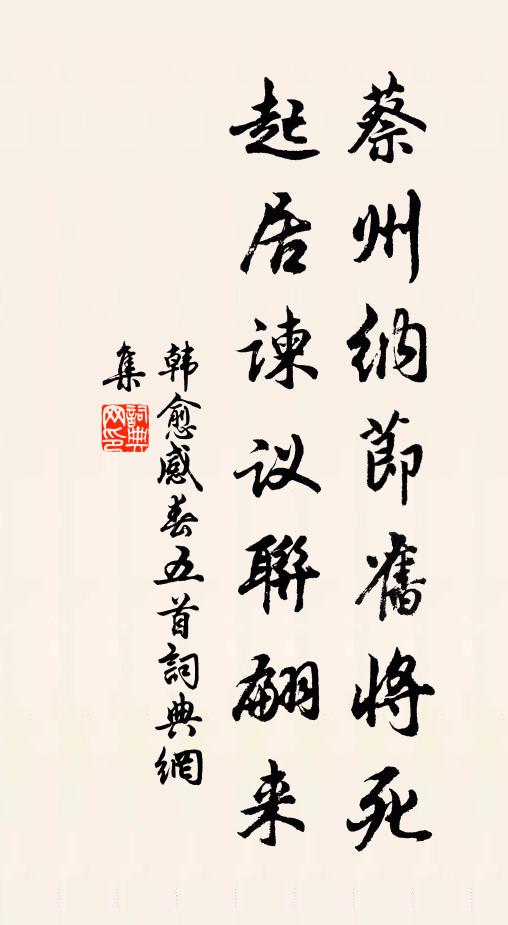 蔡州纳節舊将死
起居谏议聯翩来
韩愈感春五首詞典網
集
詞典网印